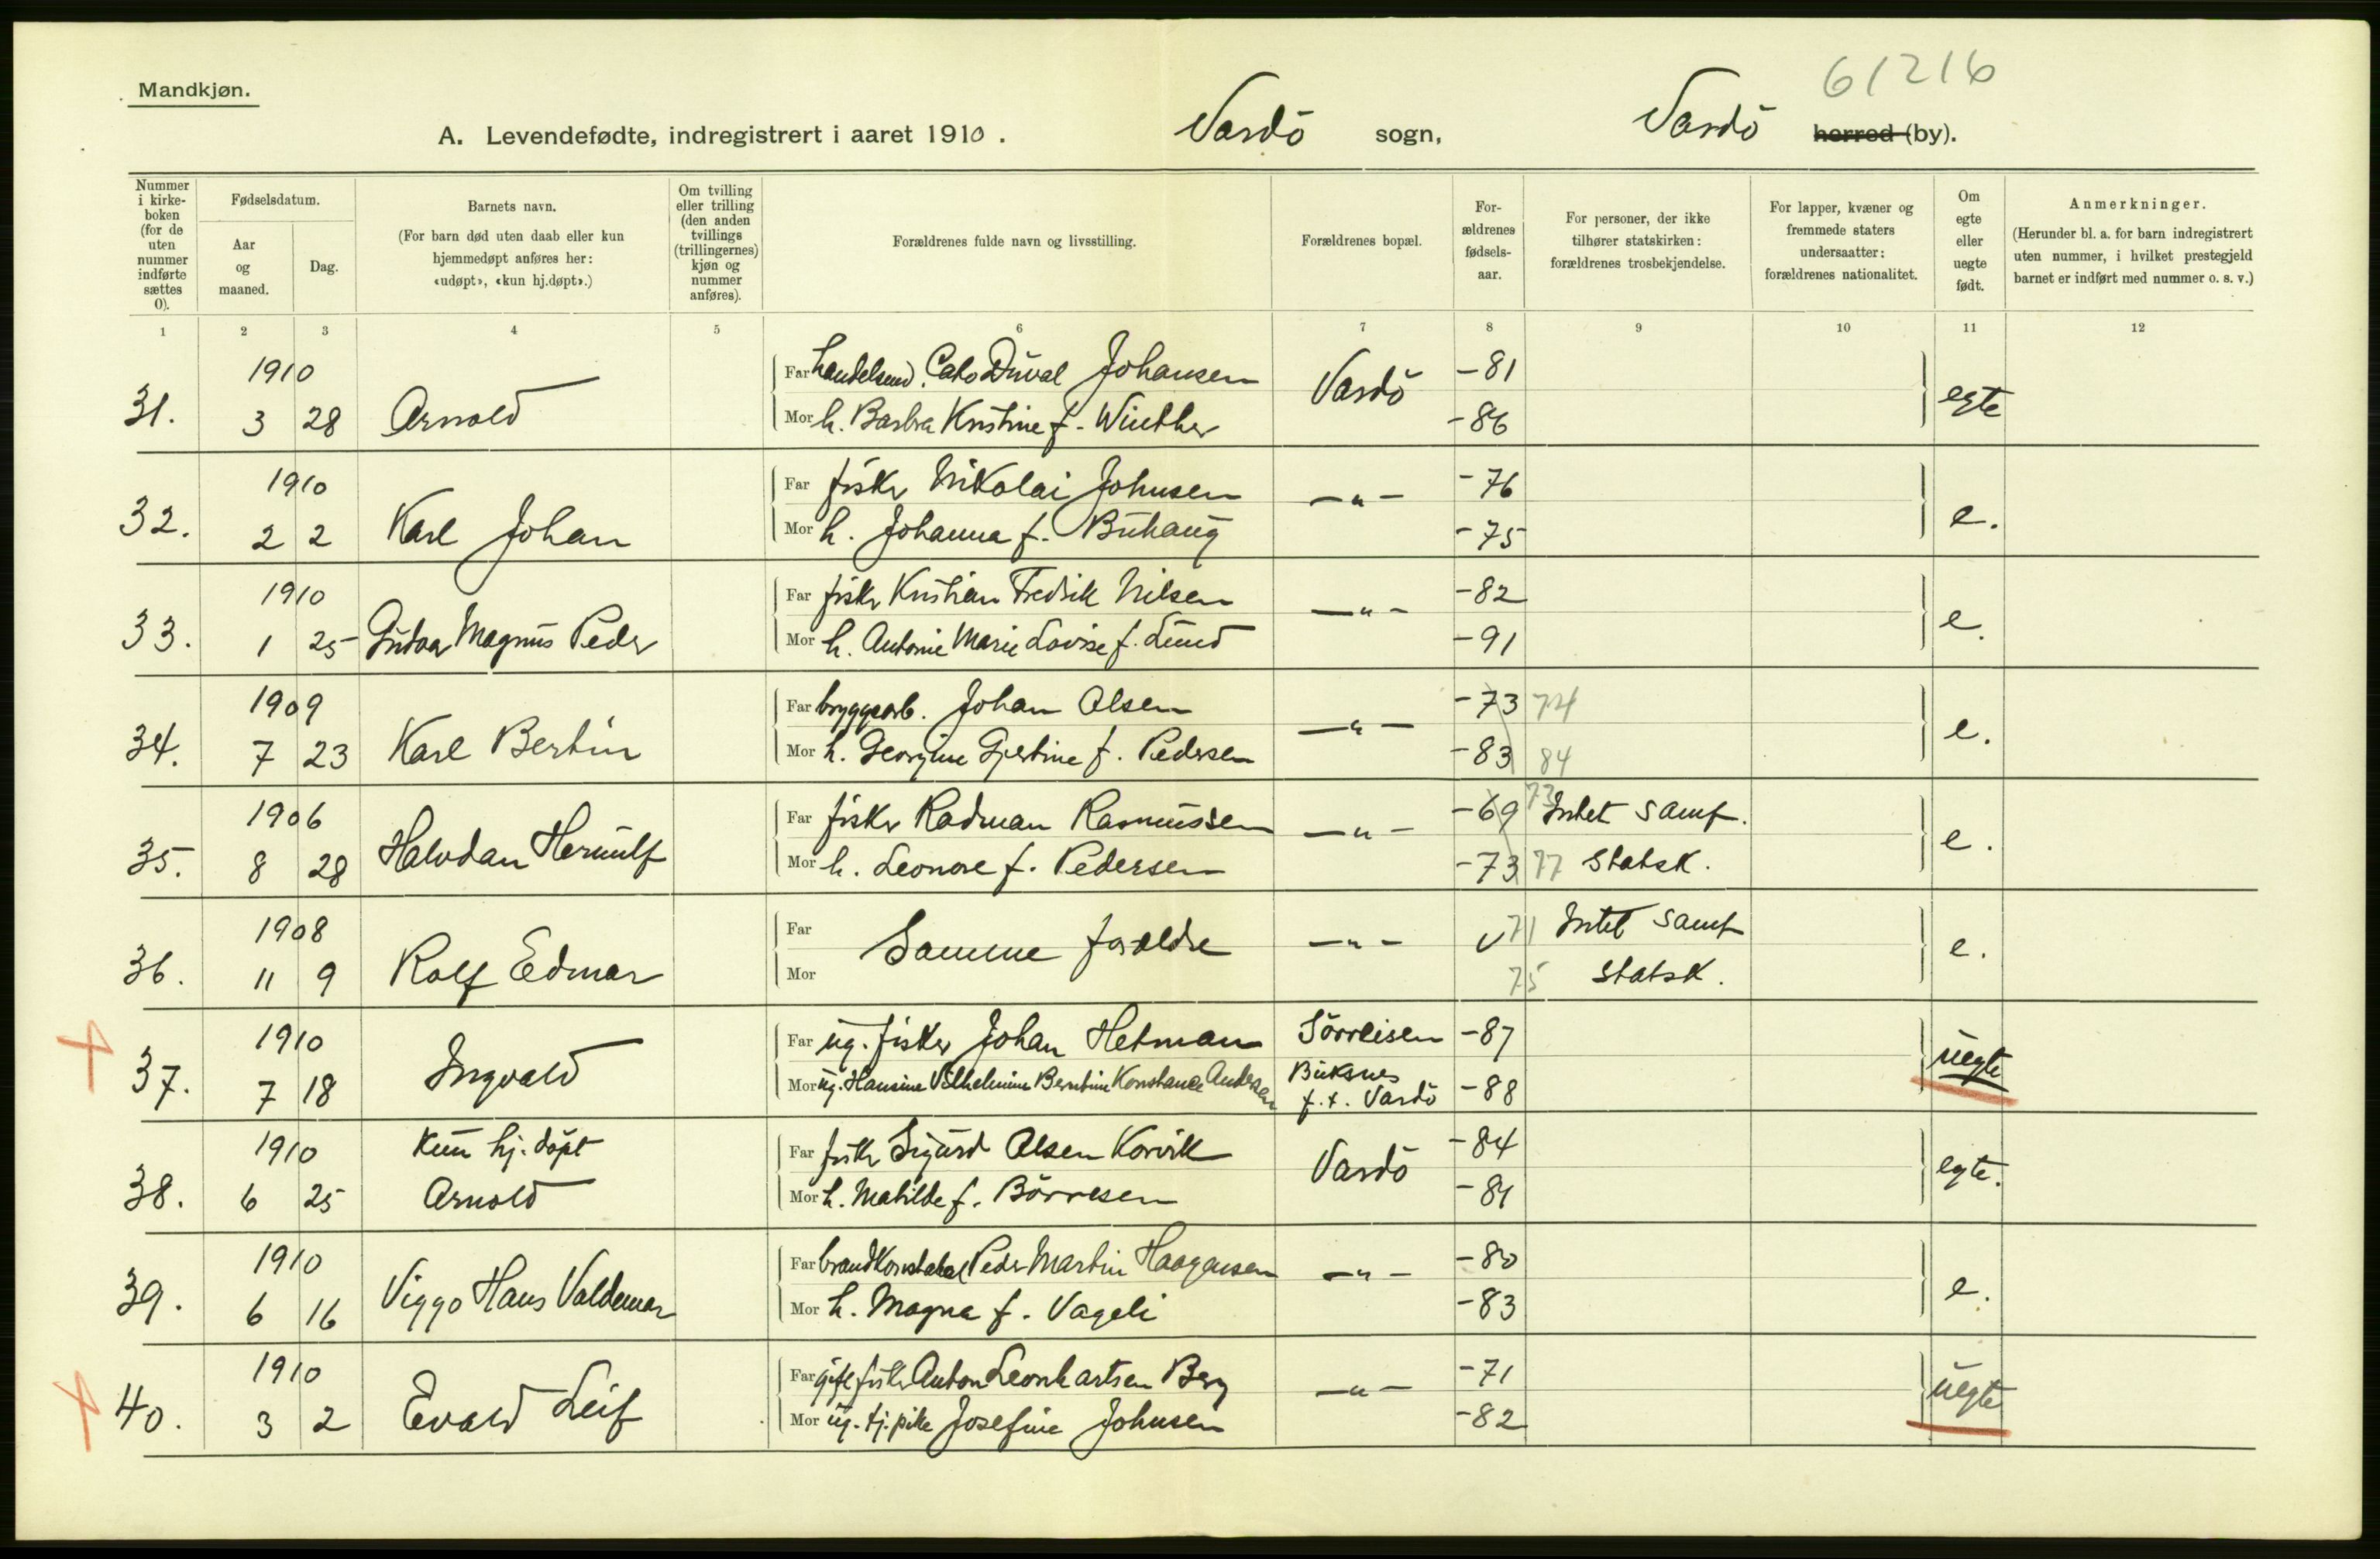 61216
Mandkjøn.
A. Levendefødte, indregistrert i aaret 1910. Vardö sogn, Vardö herred (by).
Nummer i kirkeboken (for de uten nummer indførte sættes 0).
Fødselsdatum.
Aar og maaned.
Dag.
Barnets navn.
(For barn død uten daab eller kun hjemmedøpt anføres her: «udøpt», «kun hj.døpt».)
Om tvilling eller trilling (den anden tvillings (trillingernes) kjøn og nummer anføres).
Forældrenes fulde navn og livsstilling.
Forældrenes bopæl.
Forældrenes fødselsaar.
For personer, der ikke tilhører statskirken: forældrenes trosbekjendelse.
For lapper, kvæner og fremmede staters undersaatter: forældrenes nationalitet.
Om egte eller uegte født.
Anmerkninger.
(Herunder bl. a. for barn indregistrert uten nummer, i hvilket prestegjeld barnet er indført med nummer o. s. v.)
1 2 3 4 5 6 7 8 9 10 11 12
1910 Far handelsmd. Cato Düval Johansen Vardö -81
31. 3 28 Arnold Mor h. Barbra Kristine f. Winther -86 egte
1910 Far fisker Nikolai Johnsen -"- -76
32. 2 2 Karl Johan Mor h. Johanna f. Buhaug -75 e.
1910 Far fisker Kristian Fredrik Nilsen -"- -82
33. 1 25 Magnus Peder Mor h. Antonie Marie Lovise f. Lund -91 e.
1909 Far bryggearb. Johan Olsen -"- -73 74
34. 7 23 Karl Bertin Mor h. Georgine Gjertine f. Pedersen -83 84 e.
1906 Far fisker Radman Rasmussen -"- -69 73 Intet samf.
35. 8 28 Halvdan Hermulf Mor h. Leonore f. Pedersen -73 77 Statsk. e.
1908 Far Samme forældre -"- 71 Intet samf
36. 11 9 Rolf Edmar Mor 75 Statsk. e.
1910 Far ug. fisker Johan Hetman Sörreisen -87
37. 7 18 Ingvald Mor ug. Hansine Vilhelmine Berntine Konstance Andersen Buksnes f.t. Vardö -88 uegte
1910 Kun hj. döpt Far fisker Sigurd Olsen Korvik Vardö -84
38. 6 25 Arnold Mor h. Matilde f. Börresen -84 egte.
1910 Far brandkonstabel Peder Martin Haagensen -"- -80
39. 6 16 Viggo Hans Valdemar Mor h. Magna f. Vageli -83 e.
1910 Far gift fisker Anton Leonhartsen Berg -"- -71
40. 3 2 Evald Leif Mor ug. tj. pike Josefine Johnsen -82 uegte